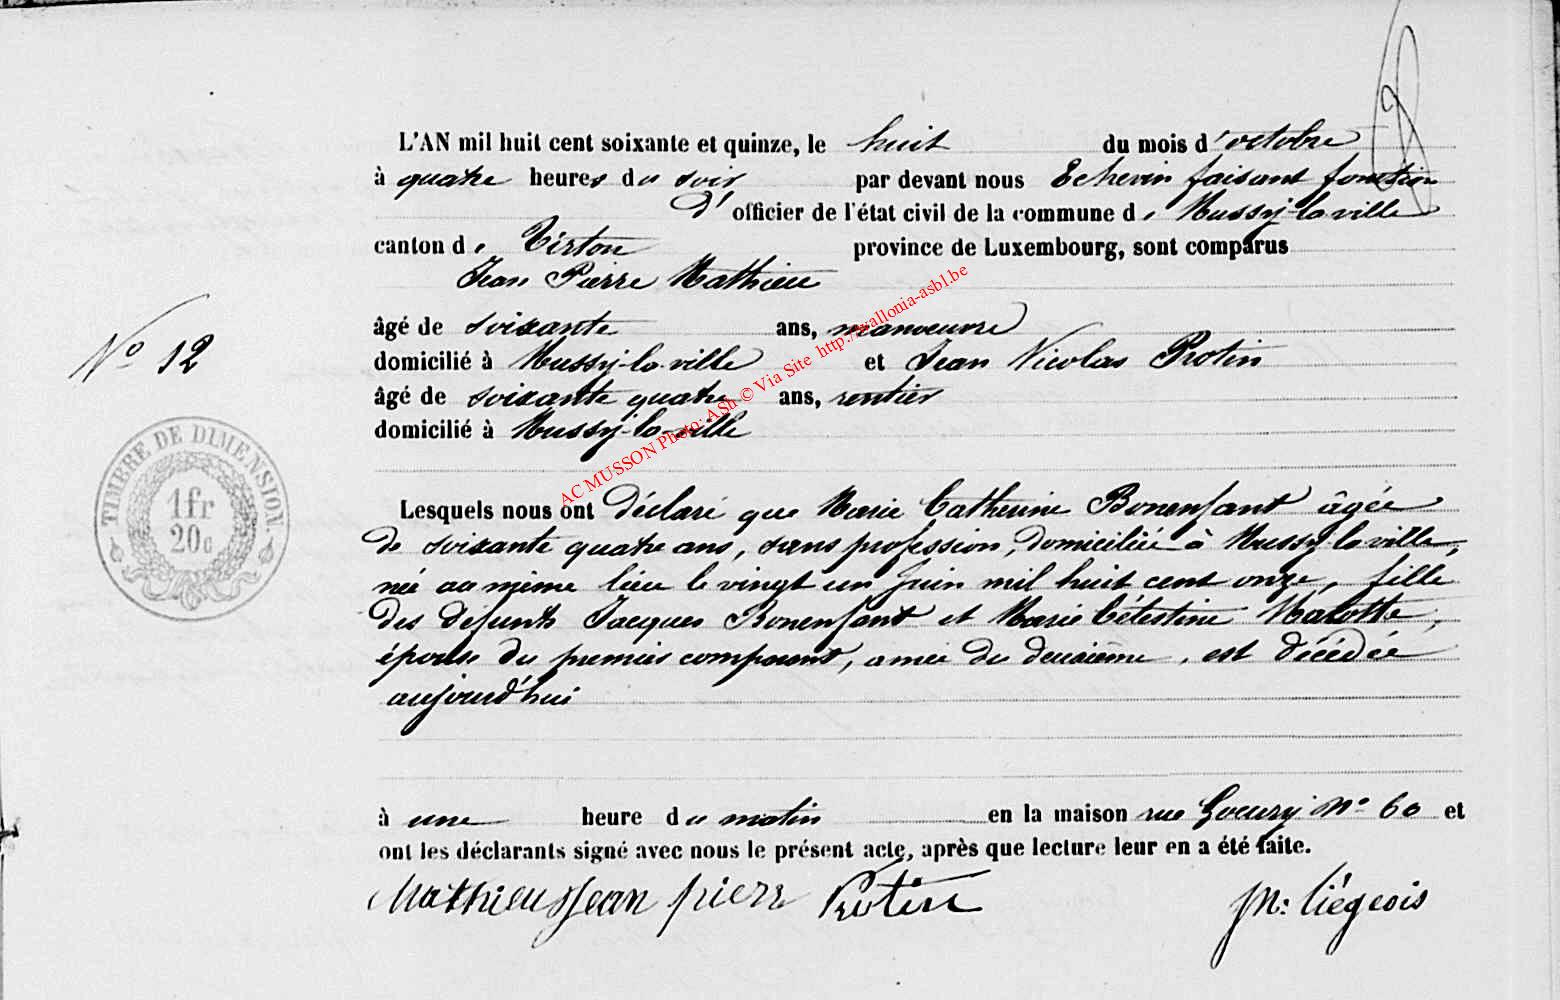 L'AN mil huit cent soixante et quinze, le huit du mois d'octobre
à quatre heures du soir par devant nous Echevin faisant fonction
d' officier de l'état civil de la commune de Mussy-la-ville
canton de Virton province de Luxembourg, sont comparus
Jean Pierre Mathieu
âgé de soixante ans, manoeuvre
domicilié à Mussy-la-ville et Jean Nicolas Protin
âgé de soixante quatre ans, rentier
domicilié à Mussy-la-ville
No 12
TIMBRE DE DIMENSION
1fr
20c
AC MUSSON Photo: Ash © Via Site http://wallonia-asbl.be
Lesquels nous ont déclaré que Marie Catherine Bonenfant âgée
de soixante quatre ans, sans profession, domiciliée à Mussy la ville,
née au même lieu le vingt un Juin mil huit cent onze, fille
des défunts Jacques Bonenfant et Marie Célestine Marotte,
épouse du premier comparant, amie du deuxième, est décédée
aujourd'hui
à une heure du matin en la maison rue Goeury No 60 et
ont les déclarants signé avec nous le présent acte, après que lecture leur en a été faite.
Mathieu Jean pierr Protin M: Liégeois